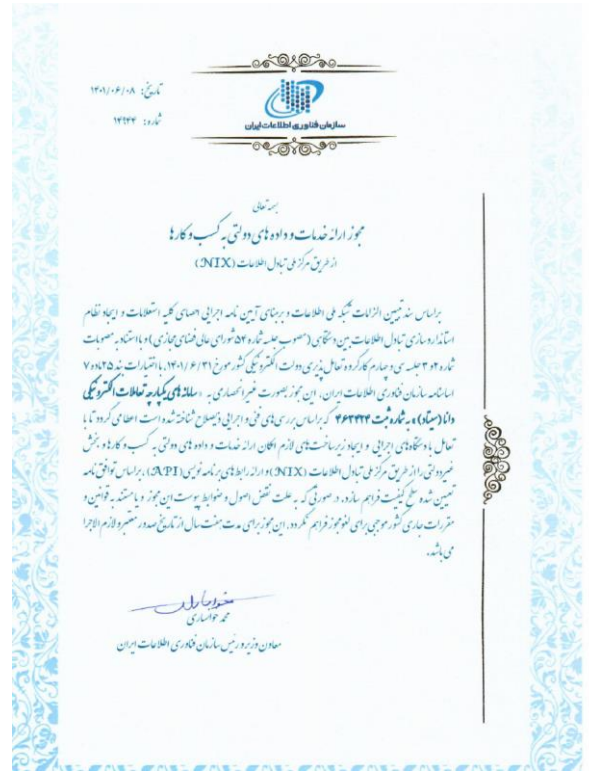 تاریخ: ۱۴۰۱/۰۶/۰۸
شماره: ۱۴۹۴۴
سازمان فناوری اطلاعات ایران
بسمه تعالی
مجوز ارائه خدمات و داده های دولتی به کسب و کارها
از طریق مرکز ملی تبادل اطلاعات (NIX)
براساس سند تبیین الزامات شبکه ملی اطلاعات و برمبنای آیین نامه اجرایی احصای کلیه استعلامات و ایجاد نظام
استانداردسازی تبادل اطلاعات بین دستگاهی (مصوب جلسه شماره ۵۴ شورای عالی فضای مجازی) و با استناد به مصوبات
شماره ۲ و ۳ جلسه سی و چهارم کارگروه تعامل پذیری دولت الکترونیکی کشور مورخ ۱۴۰۱/۶/۳۱، با اختیارات بند ۲۵ ماده ۷
اساسنامه سازمان فناوری اطلاعات ایران، این مجوز بصورت غیر انحصاری به «سامانه های یکپارچه تعاملات الکترونیکی
دانا (سیتاد)» به شماره ثبت ۴۶۳۳۲۴ که براساس بررسی های فنی و اجرایی ذیصلاح شناخته شده است اعطا می گردد تا با
تعامل با دستگاههای اجرایی و ایجاد زیرساخت های لازم امکان ارائه خدمات و داده های دولتی به کسب و کارها و بخش
غیردولتی را از طریق مرکز ملی تبادل اطلاعات (NIX) و ارائه رابط های برنامه نویسی (API)، براساس توافق نامه
تعیین شده سطح کیفیت فراهم سازد. در صورتی که به علت نقض اصول و ضوابط پیوست این مجوز و یا مستند به قوانین و
مقررات جاری کشور موجبی برای لغو مجوز فراهم نگردد، این مجوز برای مدت هفت سال از تاریخ صدور معتبر و لازم الاجرا
می باشد.
محمد خوانساری
معاون وزیر و رئیس سازمان فناوری اطلاعات ایران